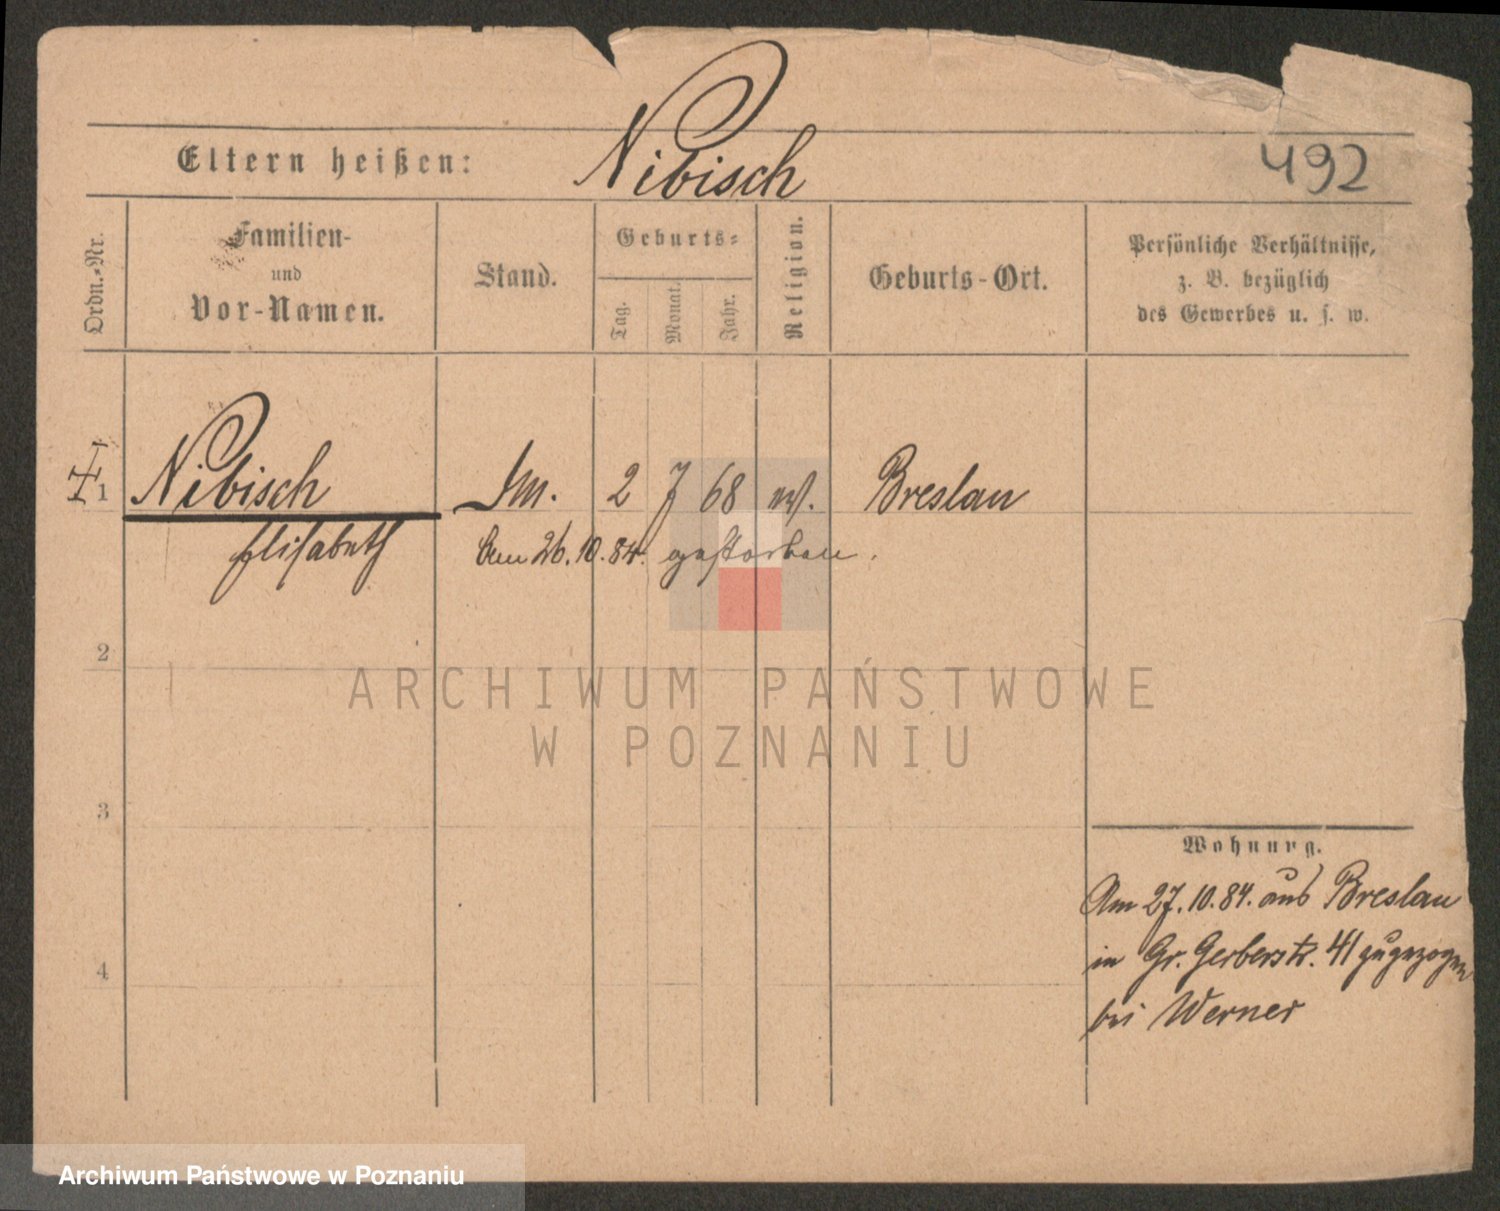 Eltern heißen: Nibisch
492
Ordn.-Nr.
Familien-
und
Vor-Namen.
Stand.
Geburts-
Tag.
Monat.
Jahr.
Religion.
Geburts-Ort.
Persönliche Verhältnisse,
z. B. bezüglich
des Gewerbes u. s. w.
1 Nibisch 2 7 68 Breslau
Elisabeth
Am 26.10.84. gestorben.
2
3
4
Wohnung.
Am 27.10.84. aus Breslau
in Gr. Gerberstr. 41 zugezogen
bei Werner
ARCHIWUM PAŃSTWOWE
W POZNANIU
Archiwum Państwowe w Poznaniu